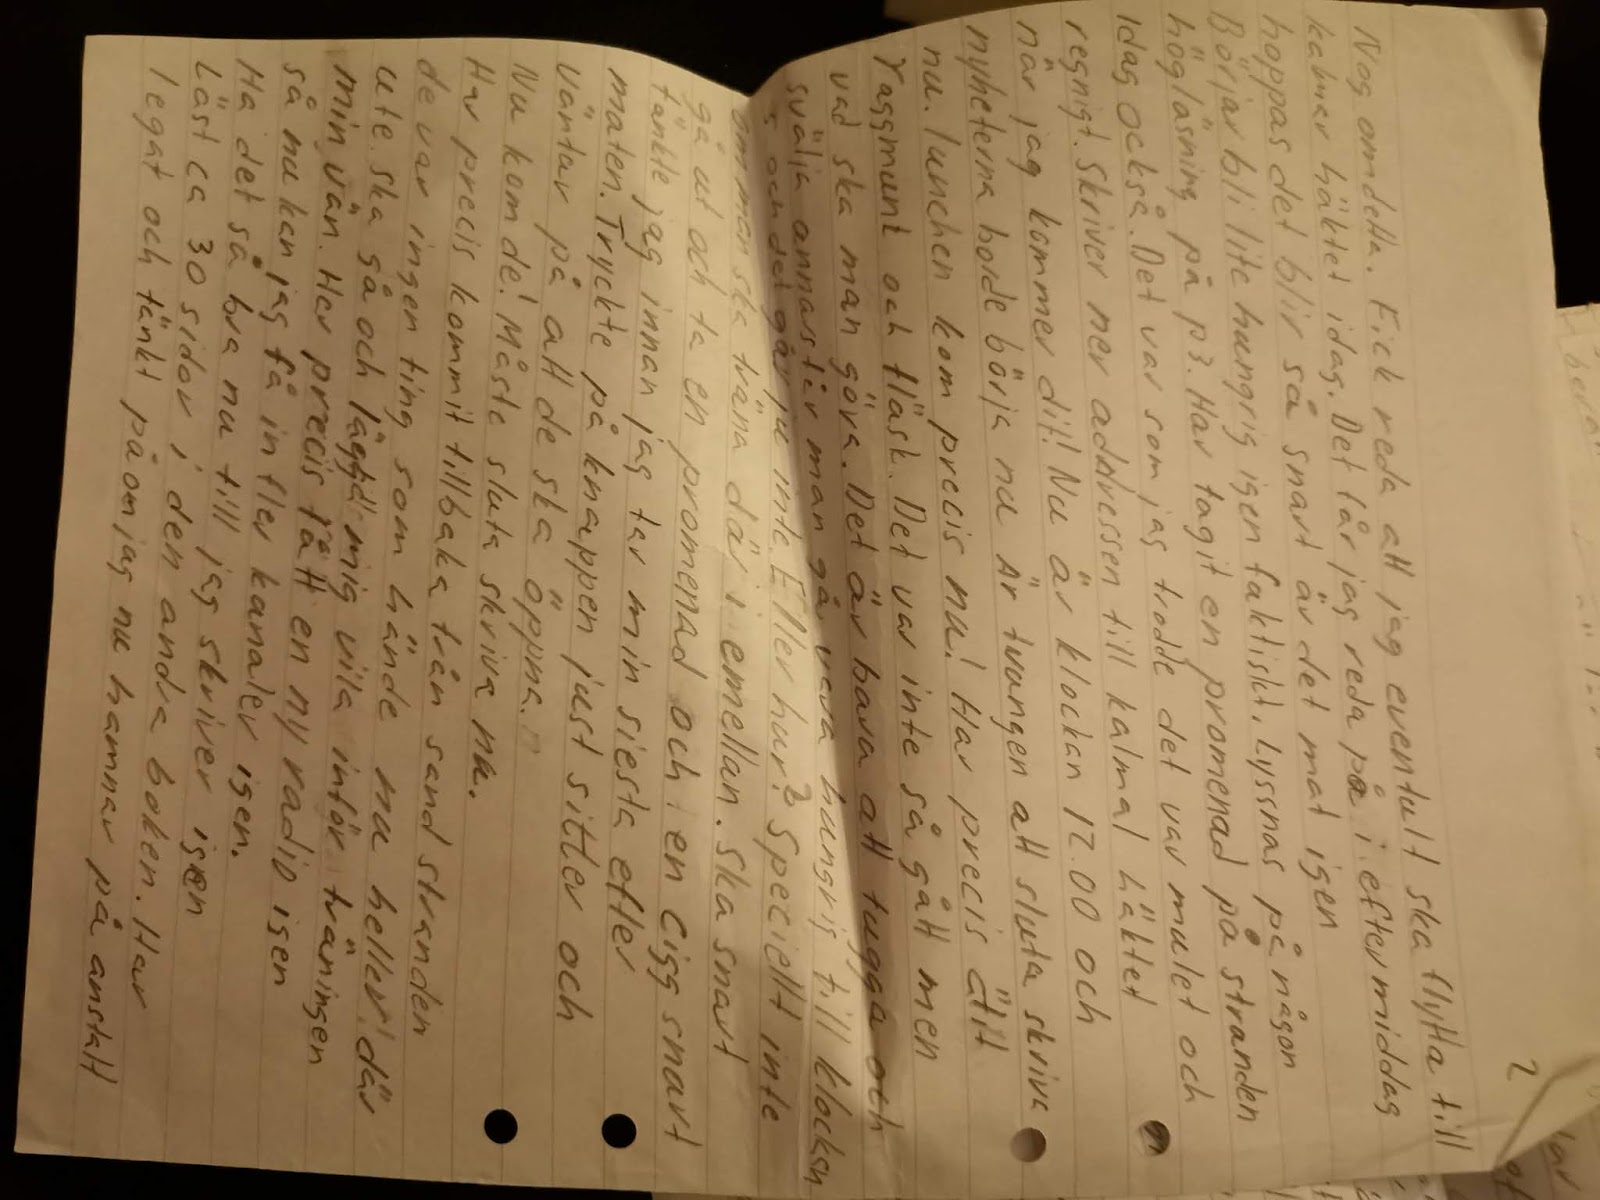 2
Nog om detta. Fick reda att jag eventult ska flytta till
kalmer häktet idag. Det lår jag reda på i eftermiddag
hoppas det blir så snart är det mat igen
Börjar bli lite hungrig igen faktiskt. Lyssnas på någon
högläsning på p3. Har tagit en promenad på stranden
Idag också. Det var som jag trodde det var mulet och
regnigt. Skriver ner addressen till kalmal häktet
när jag kommer dit! Nu är klockan 12.00 och
nyheterna borde börja nu är tvungen att sluta skriva
nu. lunchen kom precis nu! Har precis ätit
raggmunk och fläsk. Det var inte så gått men
vad ska man göra. Det är bara att tugga och
svälja annars får man gå vara hungrig till klockan
5 och det går ju inte. Eller hur? Speciellt inte
om man ska träna där i emellan. Ska snart
gå ut och ta en promenad och en cigg snart
tänkte jag innan jag tar min siesta efter
maten. Tryckte på knappen just sitter och
väntar på att de ska öppna.
Nu kom de! Måste sluta skriva nu.
Har precis kommit tillbaka från sandstranden
de var ingen ting som hände nu heller! där
ute. ska så och lägga mig vila inför träningen
min vän. Her precis fått en ny radio igen
så nu kan jag få in fler kanaler igen.
Ha det så bra nu till jag skriver igen
Läst ca 30 sidor i den andra boken. Har
legat och tänkt på om jag nu hamnar på anstalt